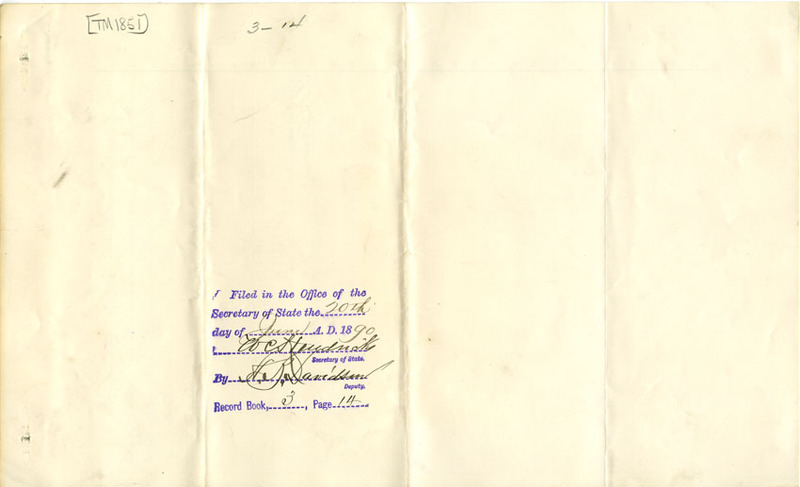 [TM1851]
3-14
Filed in the Office of the
Secretary of State the 20th
day of June A. D. 1890
E C Hendricks
Secretary of State.
By Davidson
Deputy.
Record Book, 3, Page 14